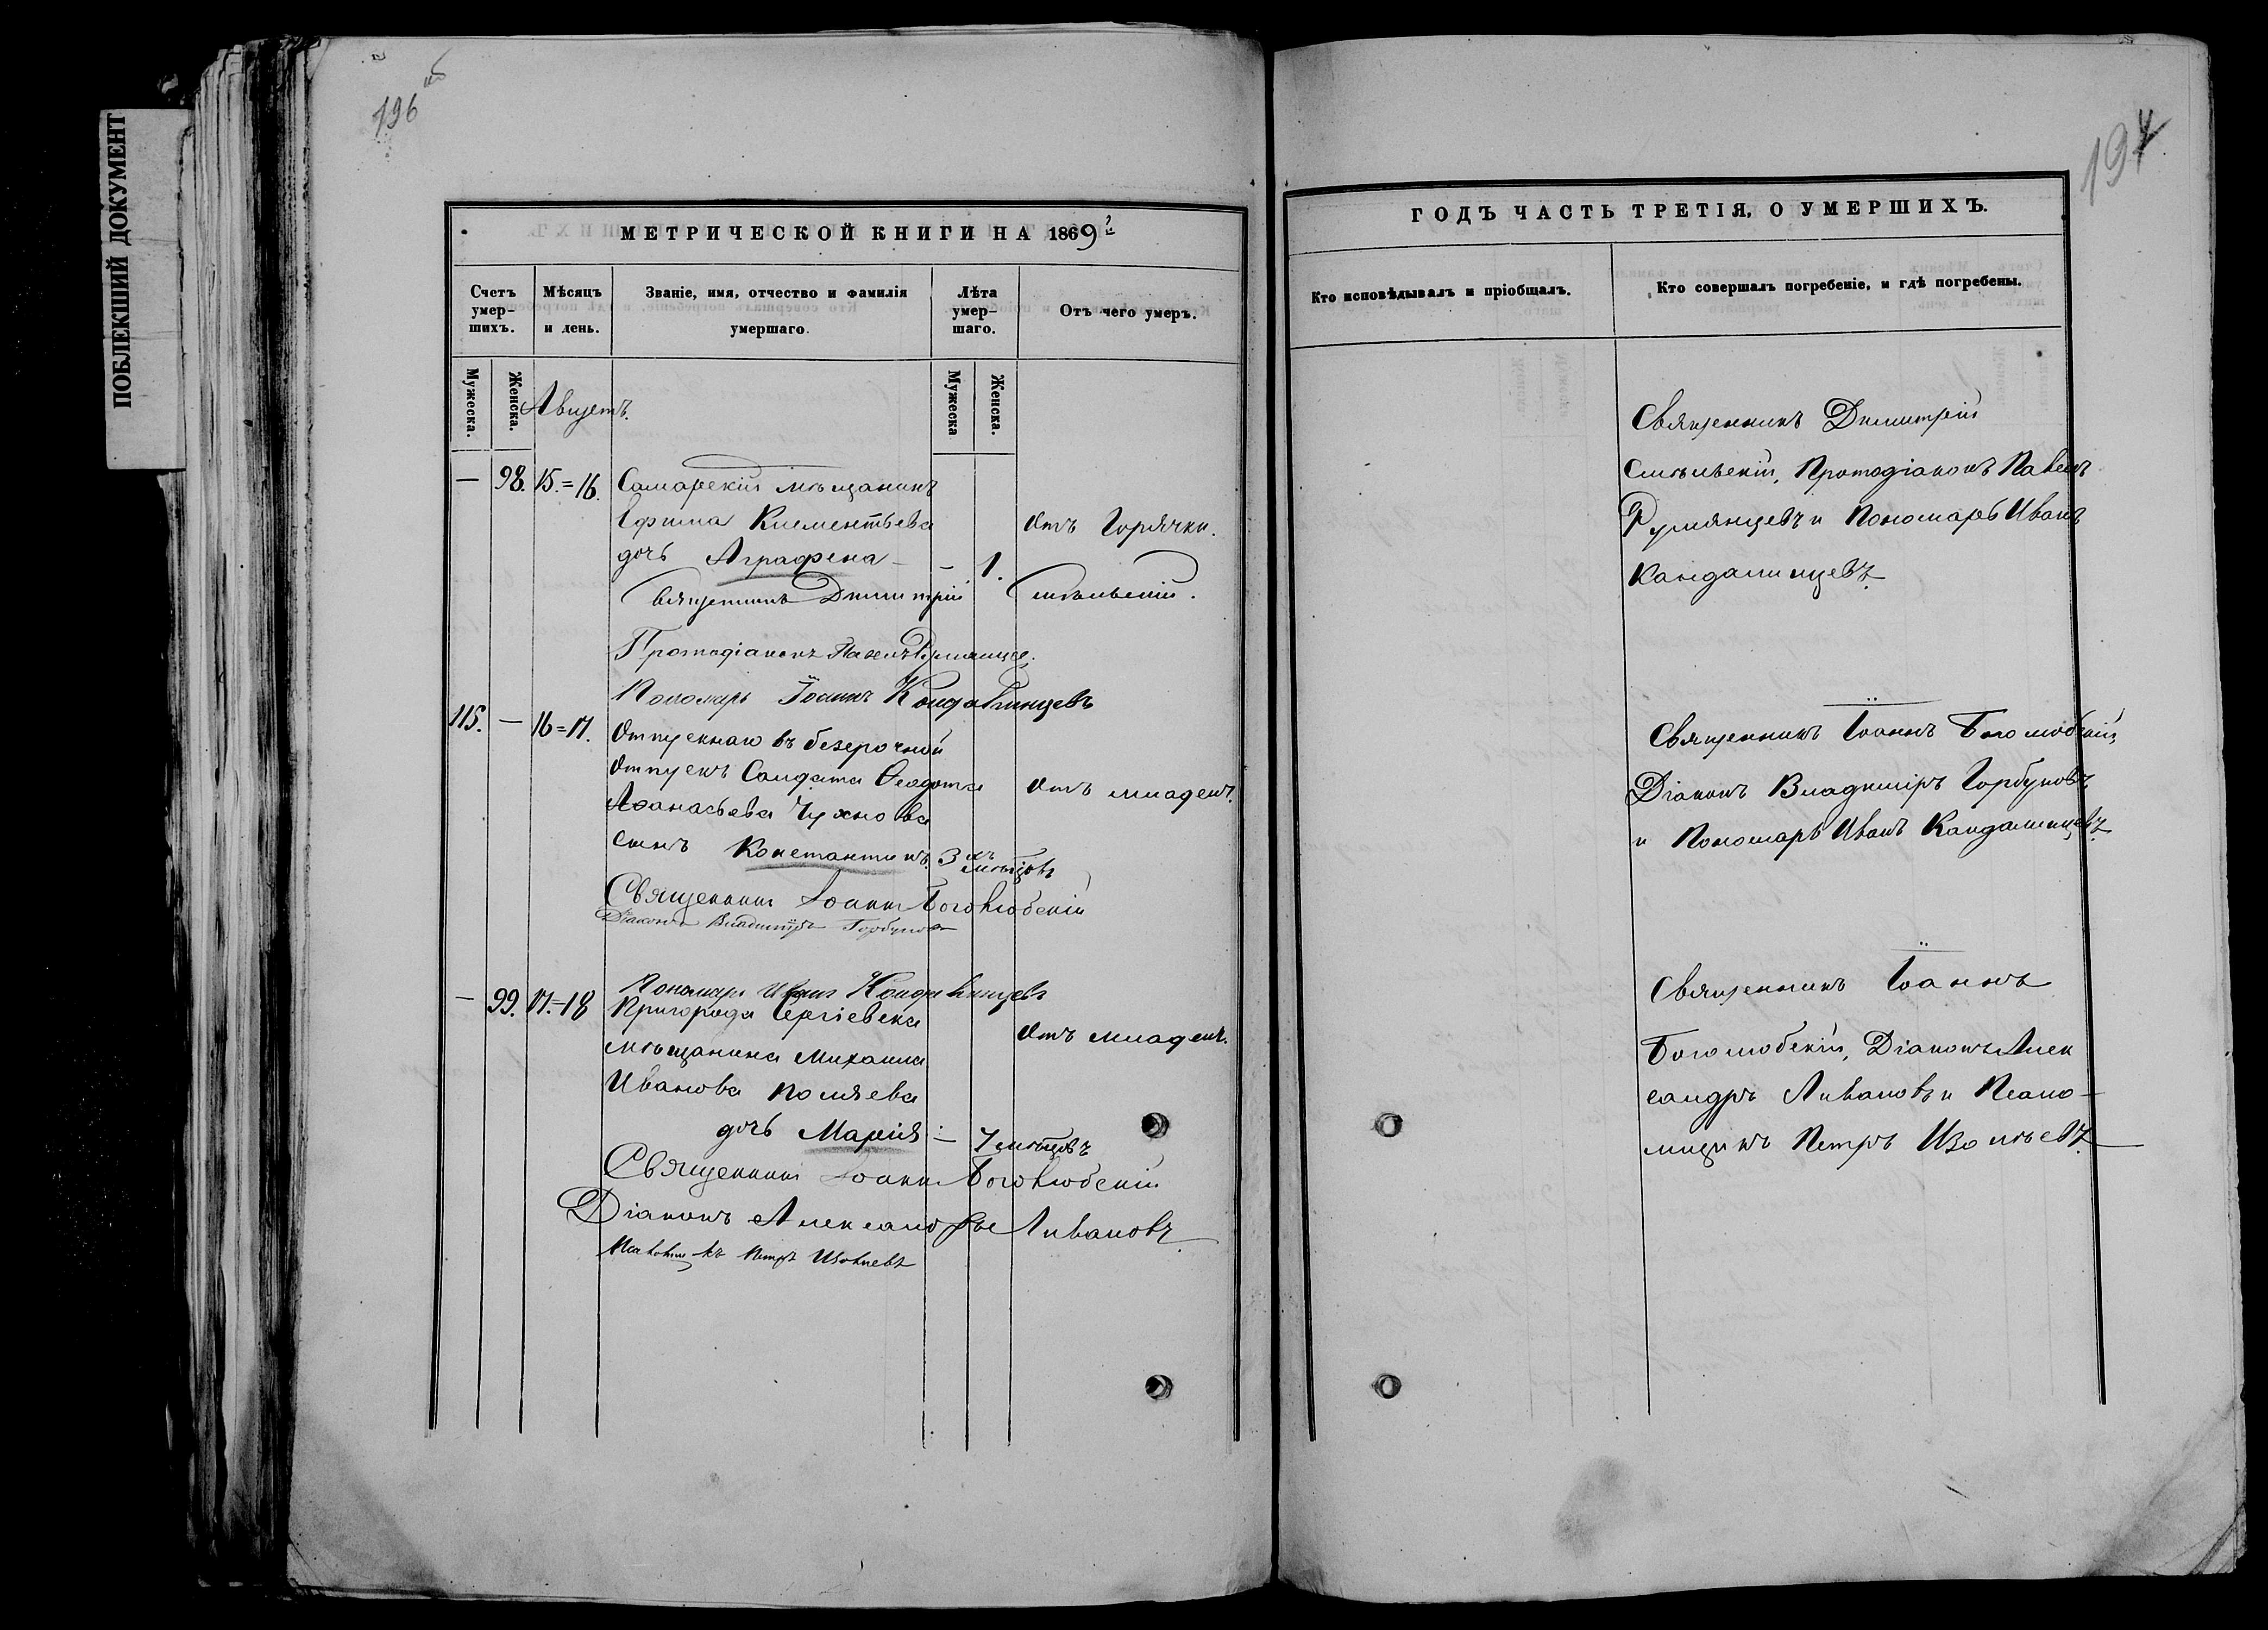 ПОБЛЕКШИЙ ДОКУМЕНТ
196 об
МЕТРИЧЕСКОЙ КНИГИ НА 1869
Счетъ умер-шихъ.
Мѣсяцъ и день.
Званіе, имя, отчество и фамилія умершаго.
Лѣта умер-шаго.
Отъ чего умеръ.
Мужеска.
Женска.
Мужеска
Женска.
Августъ.
— 98. 15.=16. Самарскій мѣщанинъ
Ефима Клементьева
Отъ Горячки.
дочь Аграфена — — 1.
Священникъ Димитрій
Протодіаконъ Павелъ Румянцев.
Пономарь Іоаннъ Кандалинцевъ
115. — 16=17. Отпускнаго въ безсрочный
отпускъ Солдата Ѳеодота
Отъ младен.
Аѳанасьева Чухнова
сынъ Константинъ. 3 хъ мѣсяцовъ
Священникъ Іоаннъ Боголюбскій
Діаконъ Владиміръ Горбуновъ
Пономарь Иванъ Кандалинцевъ
— 99. 17.=18 Пригорода Сергіевска
Отъ младен.
мѣщанина Михаила
Иванова
дочь Марія — 7 мѣсяцовъ
Священникъ Іоаннъ Боголюбскій
Діаконъ Александръ Ливановъ
Петръ
197
ГОДЪ ЧАСТЬ ТРЕТІЯ, О УМЕРШИХЪ.
Кто исповѣдывалъ и пріобщалъ.
Кто совершалъ погребеніе, и гдѣ погребены.
Священникъ Димитрій
Протодіаконъ Павелъ
Румянцевъ и Пономарь Иванъ
Кандалинцевъ.
Священникъ Іоаннъ Боголюбскій,
Діаконъ Владиміръ Горбуновъ
и Пономарь Иванъ Кандалинцевъ.
Священникъ Іоаннъ
Боголюбскій, Діаконъ Алек
сандръ Ливановъ и Псало-
мщикъ Петръ